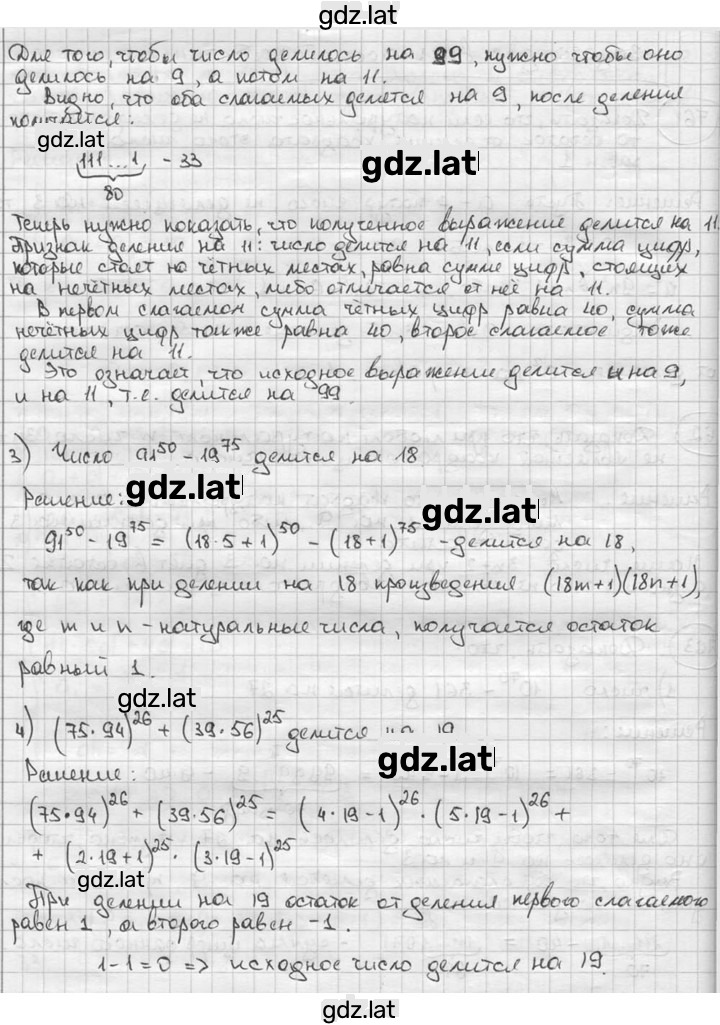 gdz.lat
Для того, чтобы число делилось на 99, нужно чтобы оно
делилось на 9, а потом на 11.
Видно, что оба слагаемых делятся на 9, после деления
получается:
gdz.lat
111...1 - 33
gdz.lat
80
Теперь нужно показать, что полученное выражение делится на 11.
Признак деления на 11: число делится на 11, если сумма цифр,
которые стоят на чётных местах, равна сумме цифр, стоящих
на нечётных местах, либо отличается от неё на 11.
В первом слагаемом сумма чётных цифр равна 40, сумма
нечётных цифр также равна 40, второе слагаемое тоже
делится на 11.
Это означает, что исходное выражение делится и на 9,
и на 11, т.е. делится на 99.
3) Число 91^50 - 19^75 делится на 18
Решение: gdz.lat
gdz.lat
91^50 - 19^75 = (18·5+1)^50 - (18+1)^75 - делится на 18,
так как при делении на 18 произведения (18m+1)(18n+1),
где m и n - натуральные числа, получается остаток
равный 1.
gdz.lat
4) (75·94)^26 + (39·56)^25 делится на 19
gdz.lat
Решение:
(75·94)^26 + (39·56)^25 = (4·19-1)^26 · (5·19-1)^26 +
+ (2·19+1)^25 · (3·19-1)^25
gdz.lat
При делении на 19 остаток от деления первого слагаемого
равен 1, а второго равен -1.
1-1=0 => исходное число делится на 19.
gdz.lat